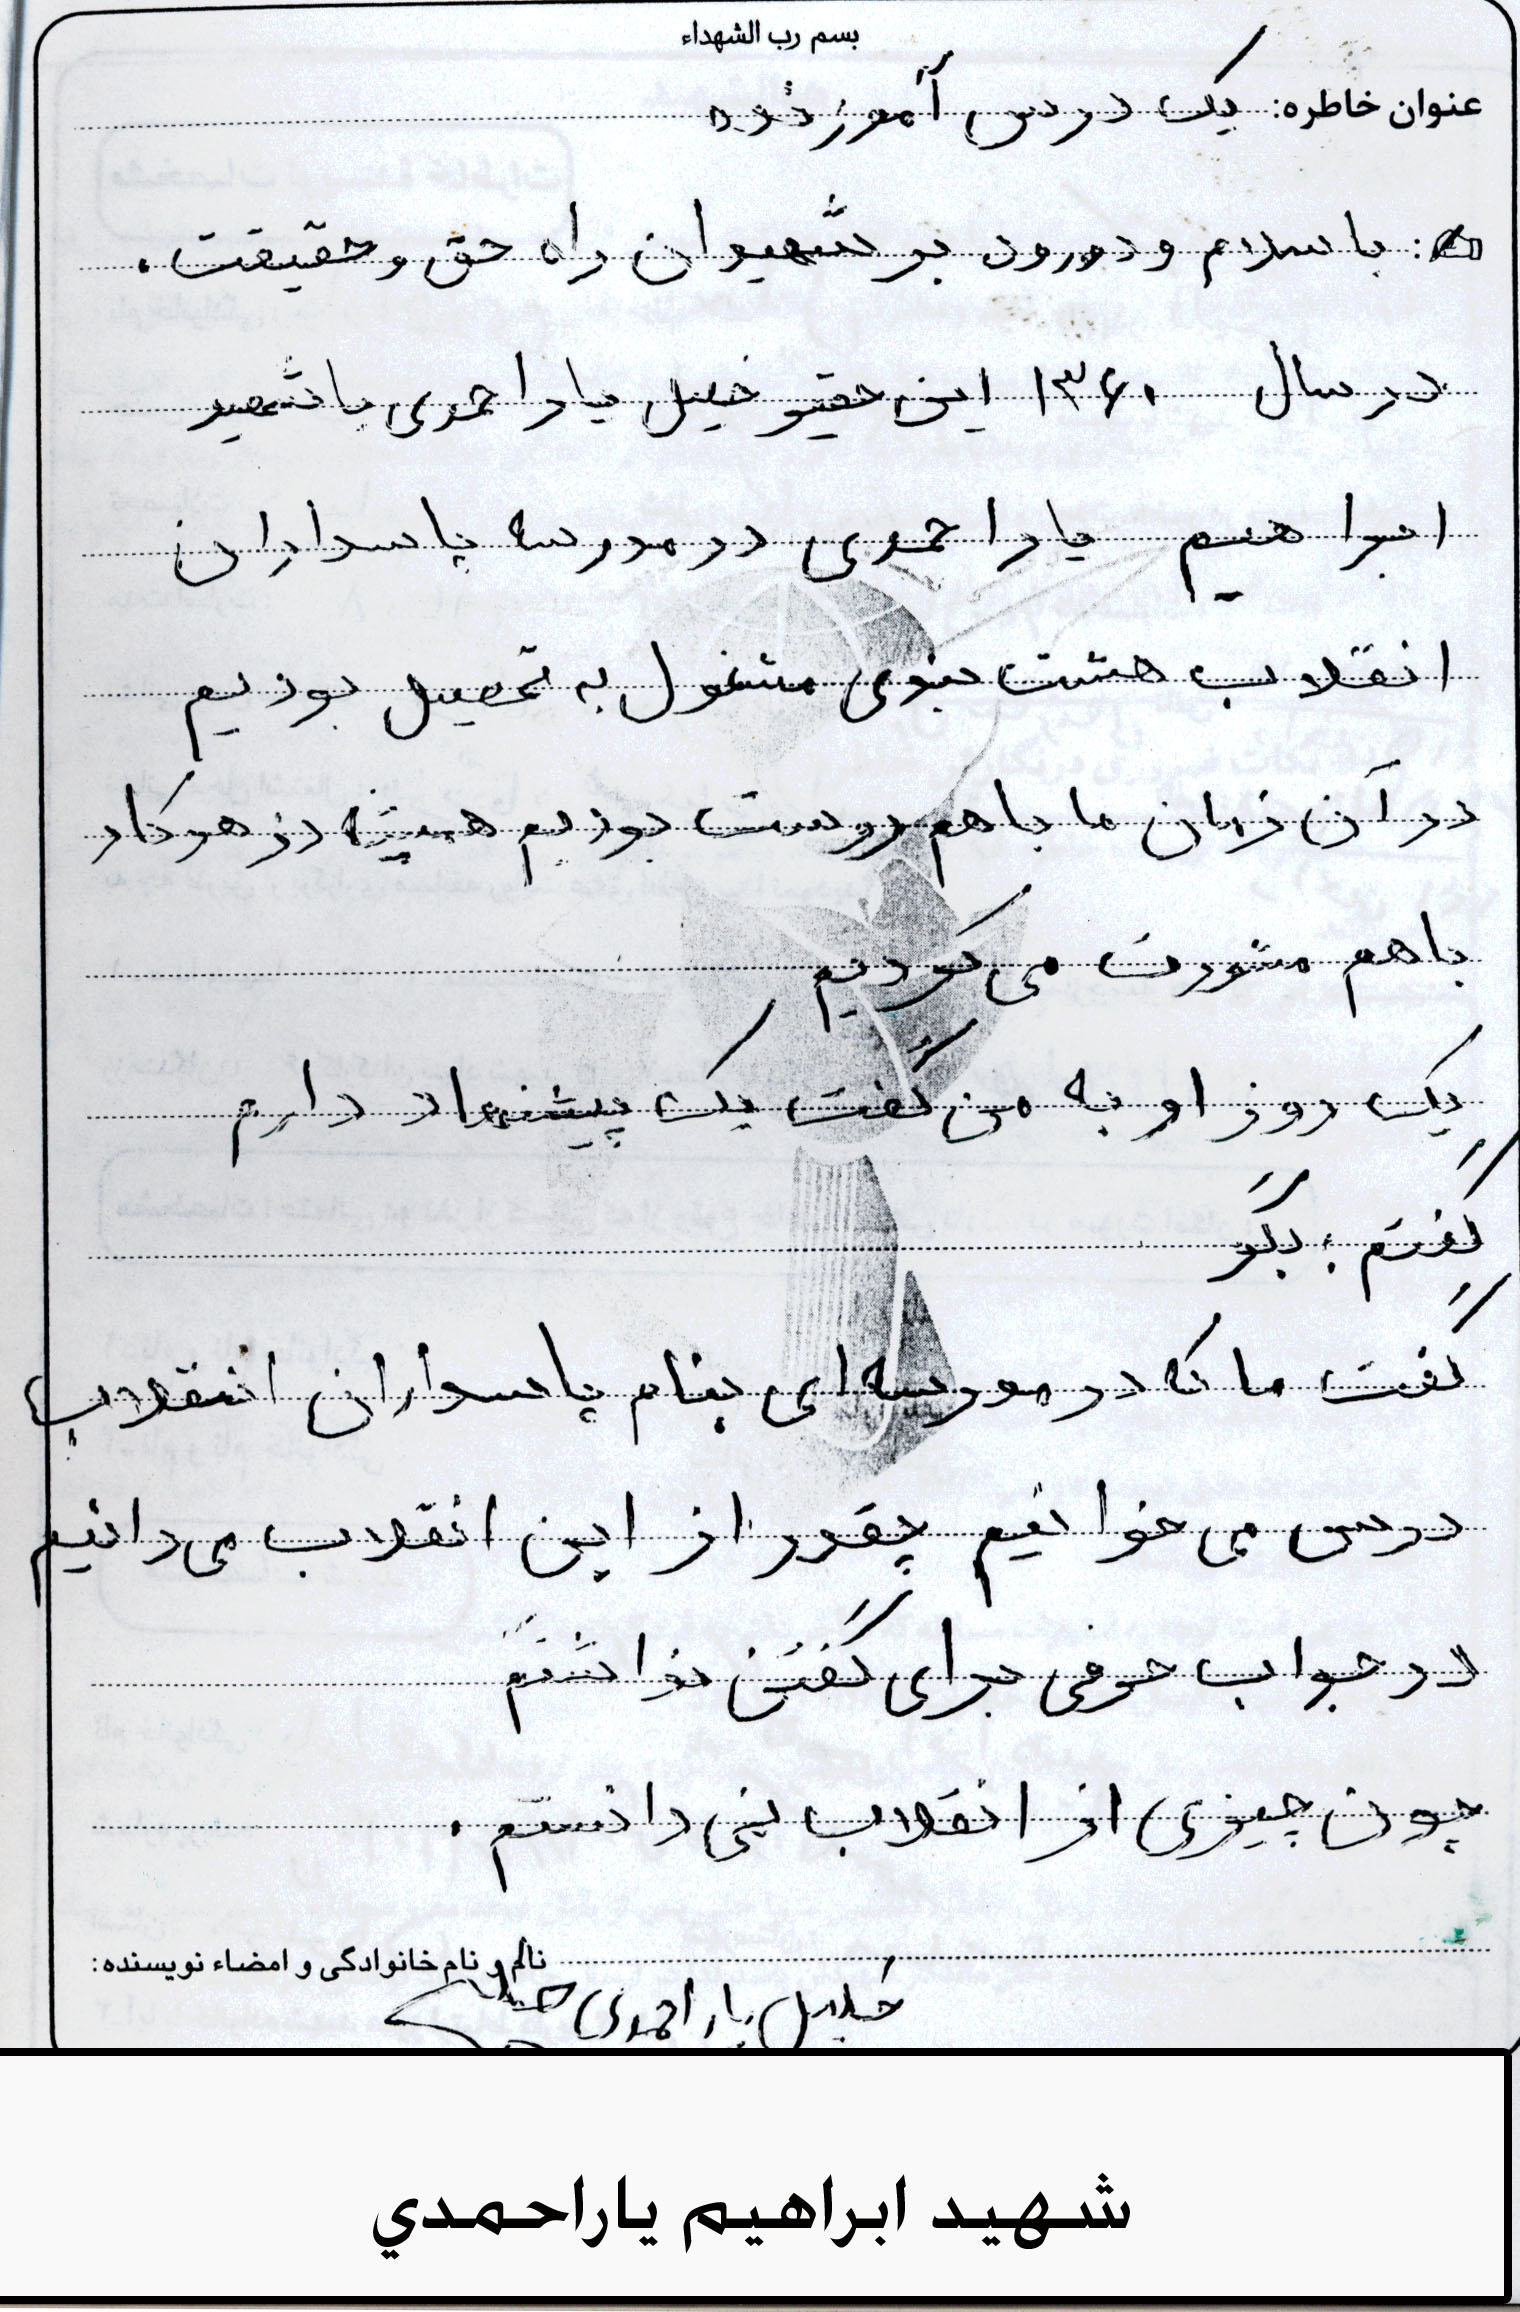 بسم رب الشهداء
عنوان خاطره: یک درس آموزنده
: با سلام و درود بر شهیدان راه حق و حقیقت.
در سال ۱۳۶۰ این حقیر خلیل یاراحمدی با شهید
ابراهیم یاراحمدی در مدرسه پاسداران
انقلاب هشت بنوی مشغول به تحصیل بودیم
در آن زمان ما با هم دوست بودیم همیشه در هر کار
با هم مشورت می کردیم
یک روز او به من گفت یک پیشنهاد دارم
گفتم : بگو
گفت ما که در مدرسه ای بنام پاسداران انقلاب
درس می خوانیم چقدر از این انقلاب می دانیم
در جواب حرفی برای گفتن نداشتم
چون چیزی از انقلاب نمی دانستم .
نام و نام خانوادگی و امضاء نویسنده:
خلیل یاراحمدی
شهيد ابراهيم ياراحمدي